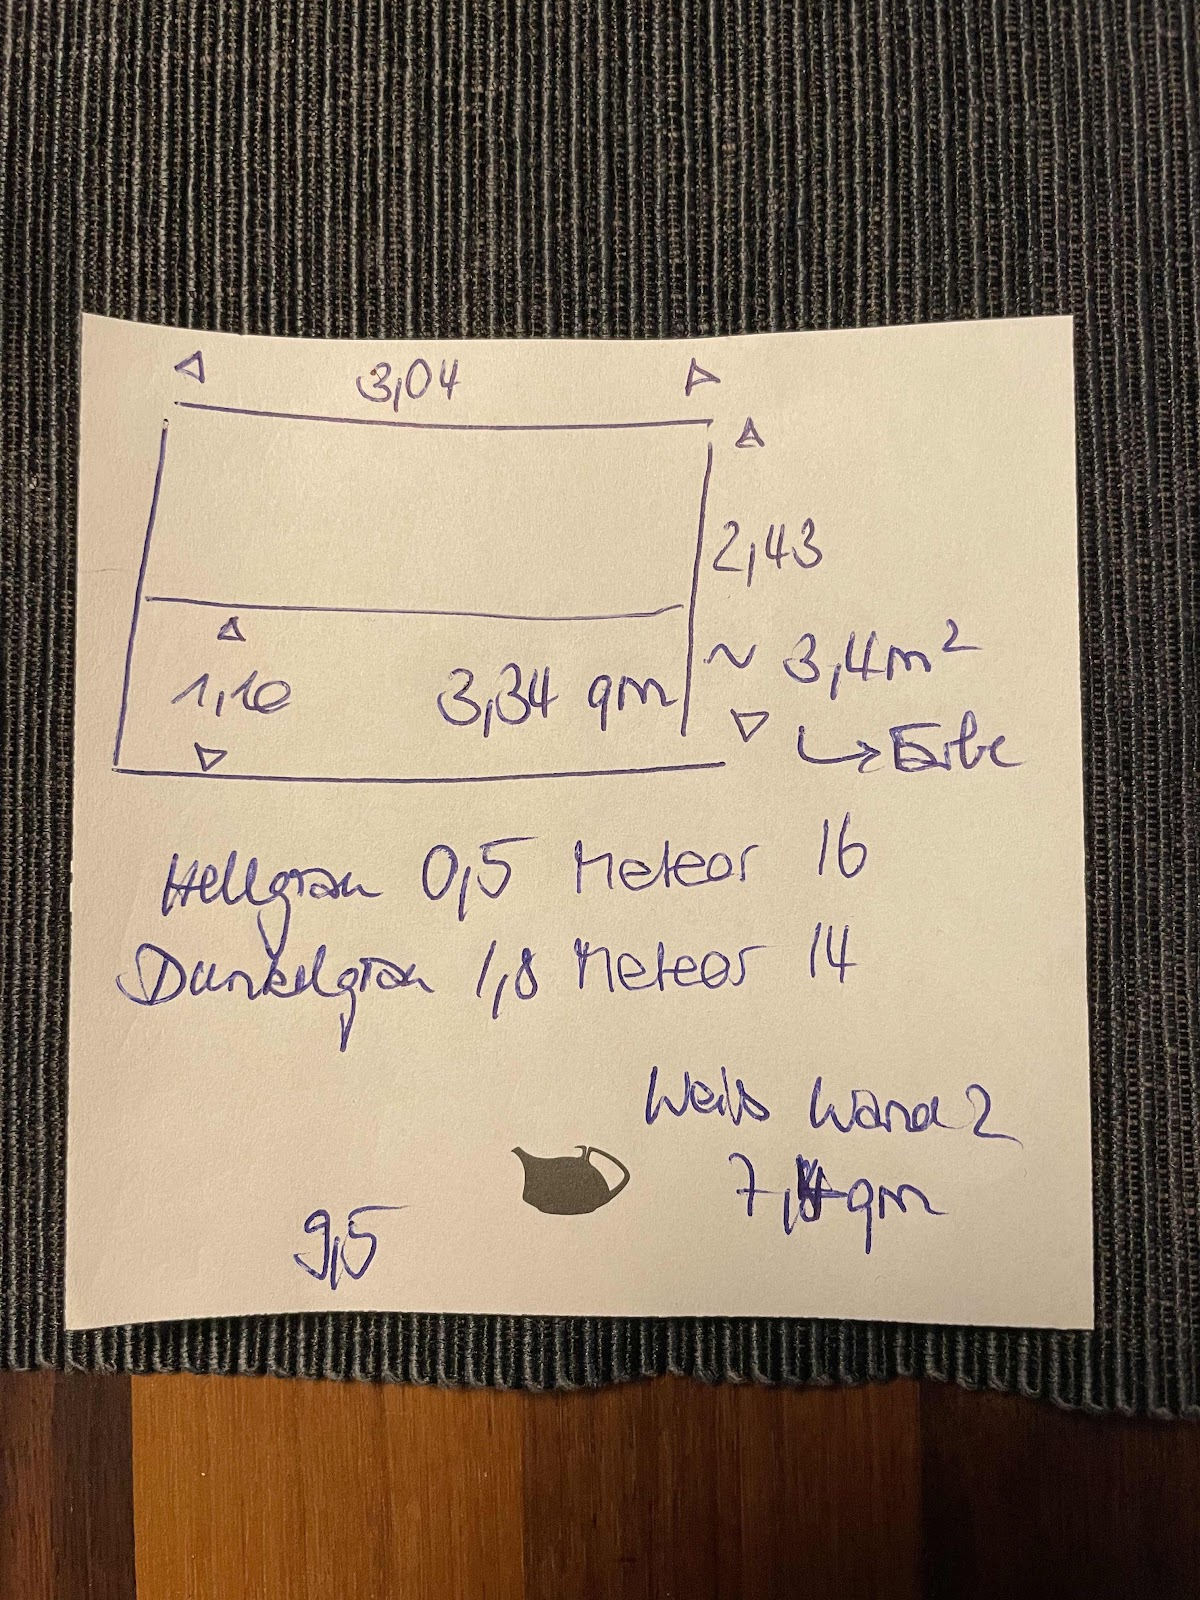 3,04
2,43
1,10
3,34 qm
~ 3,4m²
↳ Farbe
Hellgrau 0,5 Meteor 16
Dunkelgrau 1,8 Meteor 14
Weiß Wand 2
qm
9,5